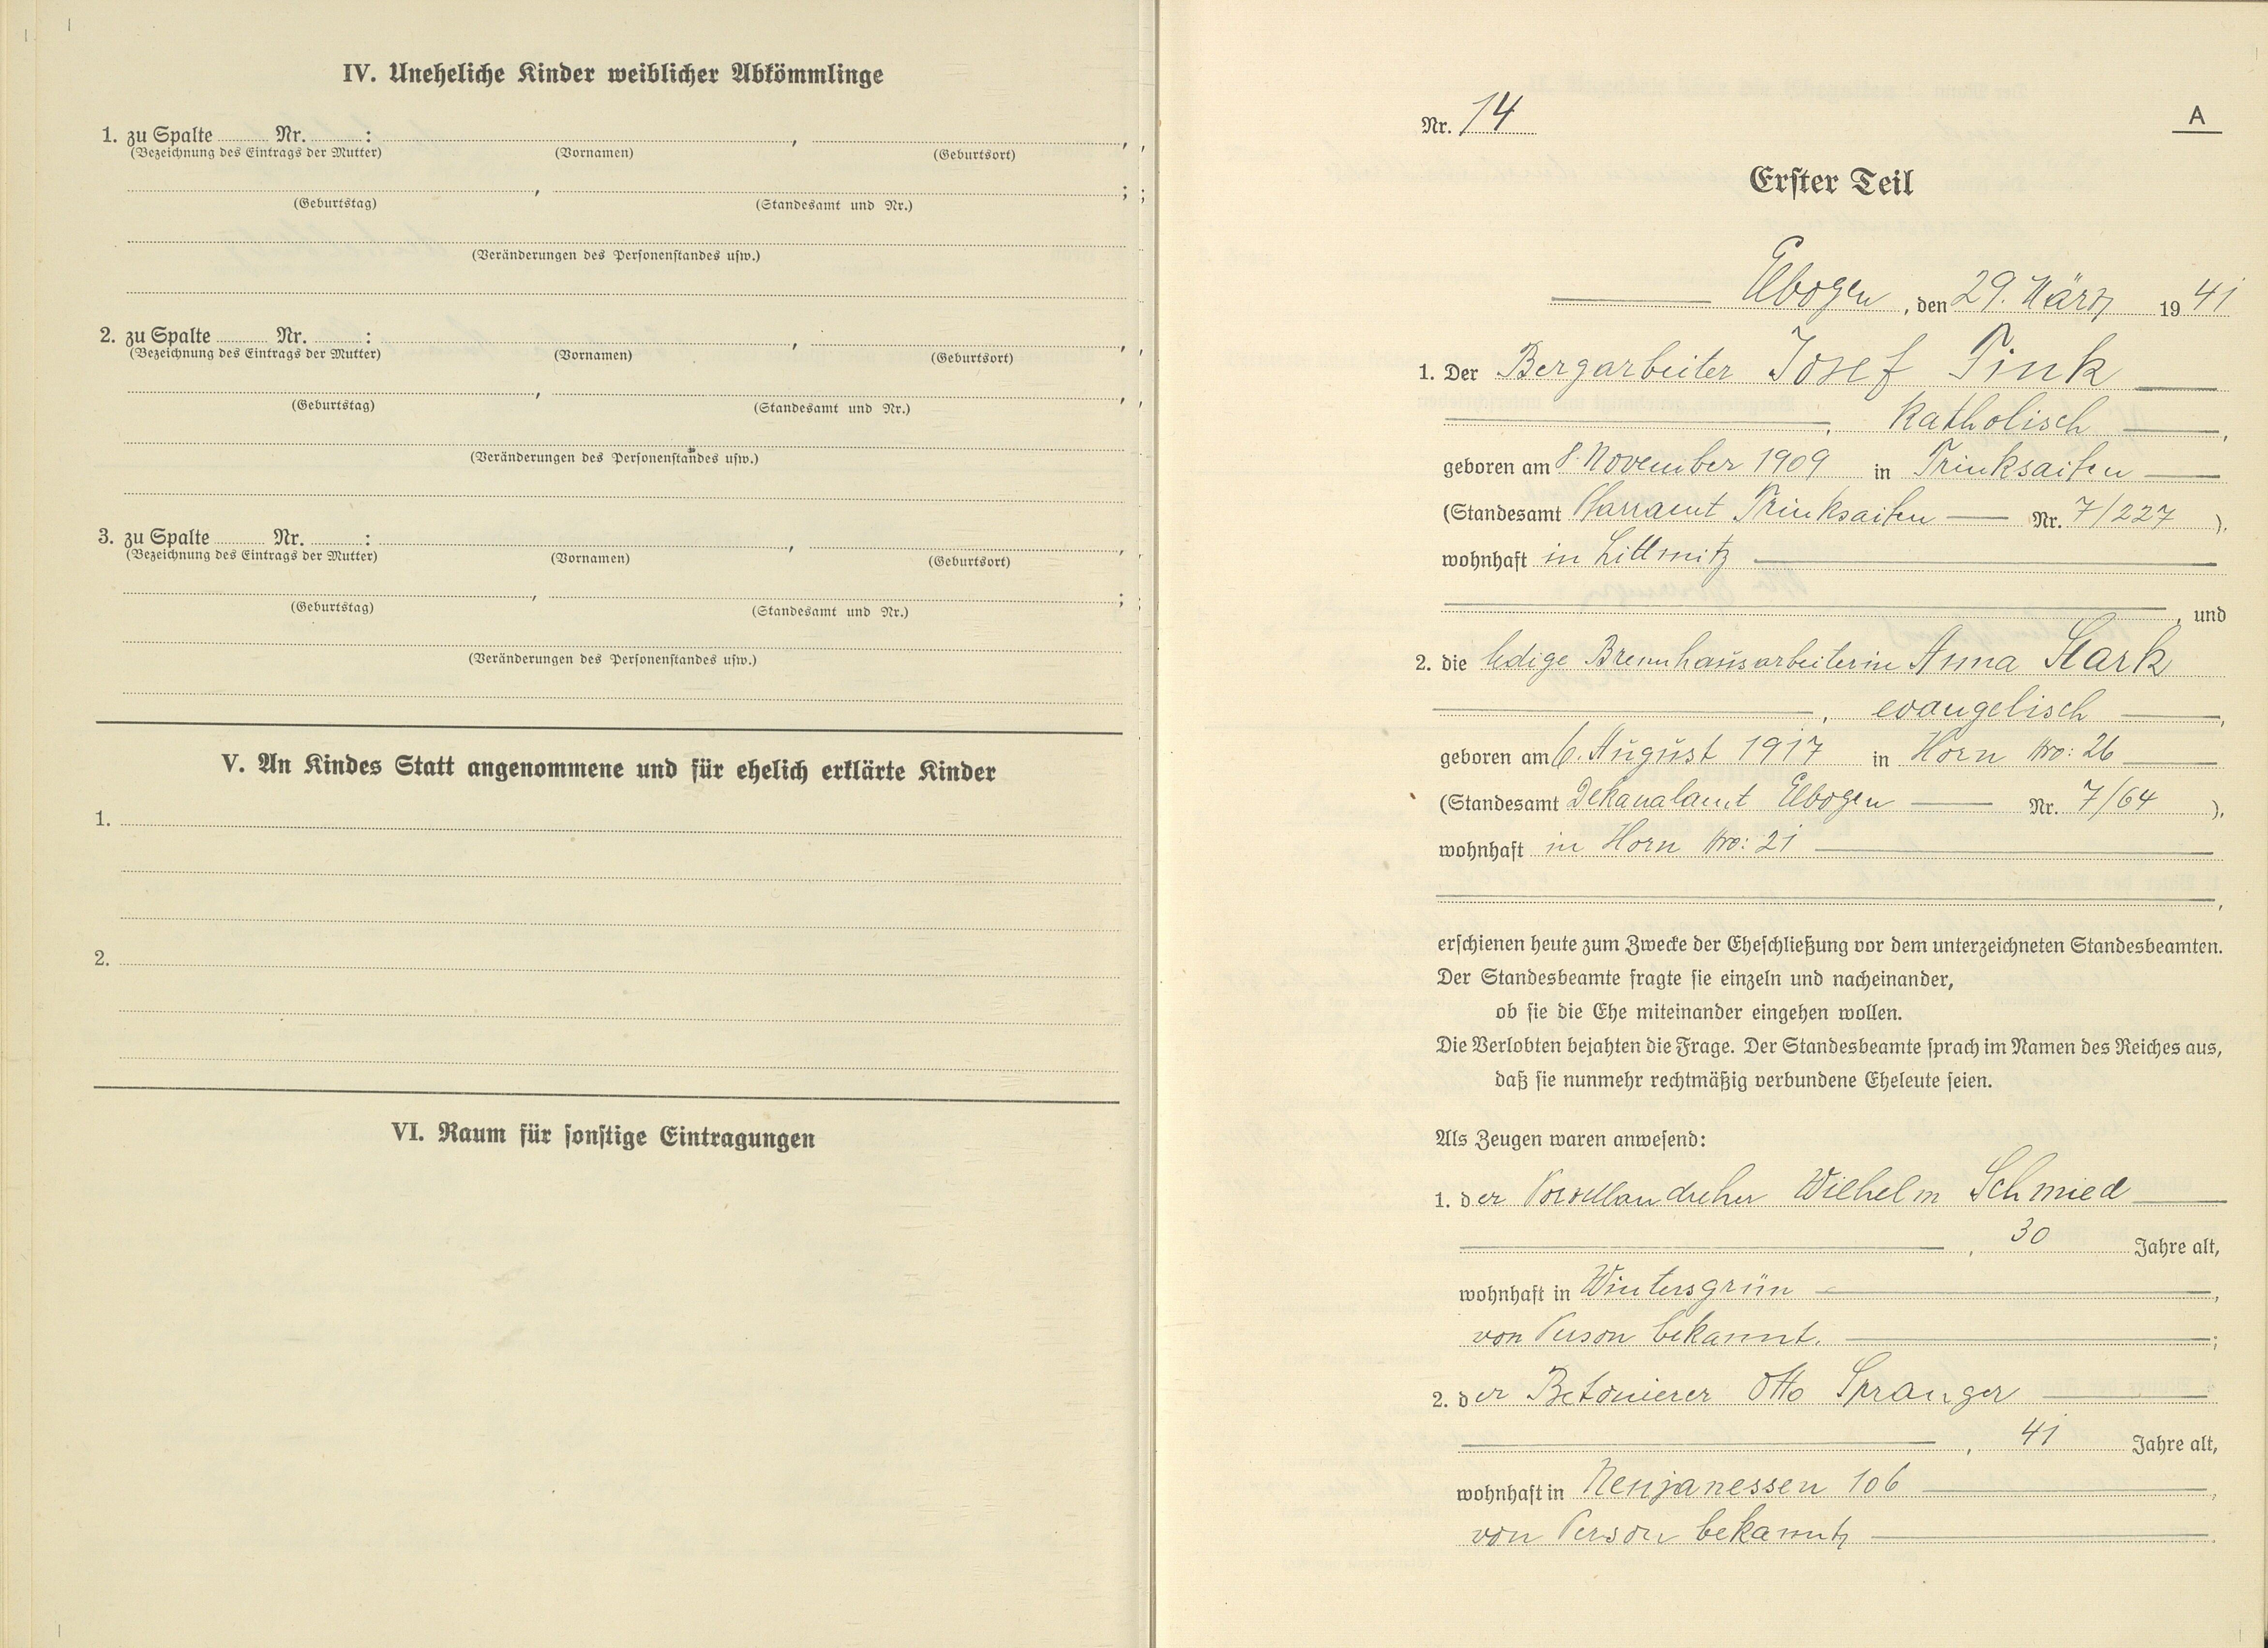 IV. Uneheliche Kinder weiblicher Abkömmlinge
1. zu Spalte ........ Nr. ........ : ........ , ........ ,
(Bezeichnung des Eintrags der Mutter) (Vornamen) (Geburtsort)
........ , ........ ;
(Geburtstag) (Standesamt und Nr.)
(Veränderungen des Personenstandes usw.)
2. zu Spalte ........ Nr. ........ : ........ , ........ ,
(Bezeichnung des Eintrags der Mutter) (Vornamen) (Geburtsort)
........ , ........ ,
(Geburtstag) (Standesamt und Nr.)
(Veränderungen des Personenstandes usw.)
3. zu Spalte ........ Nr. ........ : ........ , ........ ,
(Bezeichnung des Eintrags der Mutter) (Vornamen) (Geburtsort)
........ , ........ ;
(Geburtstag) (Standesamt und Nr.)
(Veränderungen des Personenstandes usw.)
V. An Kindes Statt angenommene und für ehelich erklärte Kinder
1.
2.
VI. Raum für sonstige Eintragungen
Nr. 14
A
Erster Teil
Elbogen, den 29. März 1941
1. Der Bergarbeiter Josef Pink
, katholisch ,
geboren am 8. November 1909 in Trinksaifen
(Standesamt Pfarramt Trinksaifen Nr. 7/227 ),
wohnhaft in Littmitz
, und
2. die ledige Brennhausarbeiterin Anna Stark
, evangelisch ,
geboren am 6. August 1917 in Horn Nro: 26
(Standesamt Dekanalamt Elbogen Nr. 7/64 ),
wohnhaft in Horn Nro: 21
,
erschienen heute zum Zwecke der Eheschließung vor dem unterzeichneten Standesbeamten.
Der Standesbeamte fragte sie einzeln und nacheinander,
ob sie die Ehe miteinander eingehen wollen.
Die Verlobten bejahten die Frage. Der Standesbeamte sprach im Namen des Reiches aus,
daß sie nunmehr rechtmäßig verbundene Eheleute seien.
Als Zeugen waren anwesend:
1. der Porzellandreher Wilhelm Schmied
, 30 Jahre alt,
wohnhaft in Wintersgrün ,
von Person bekannt. ;
2. der Betonierer Otto Spranger
, 41 Jahre alt,
wohnhaft in Neujanessen 106 ,
von Person bekannt